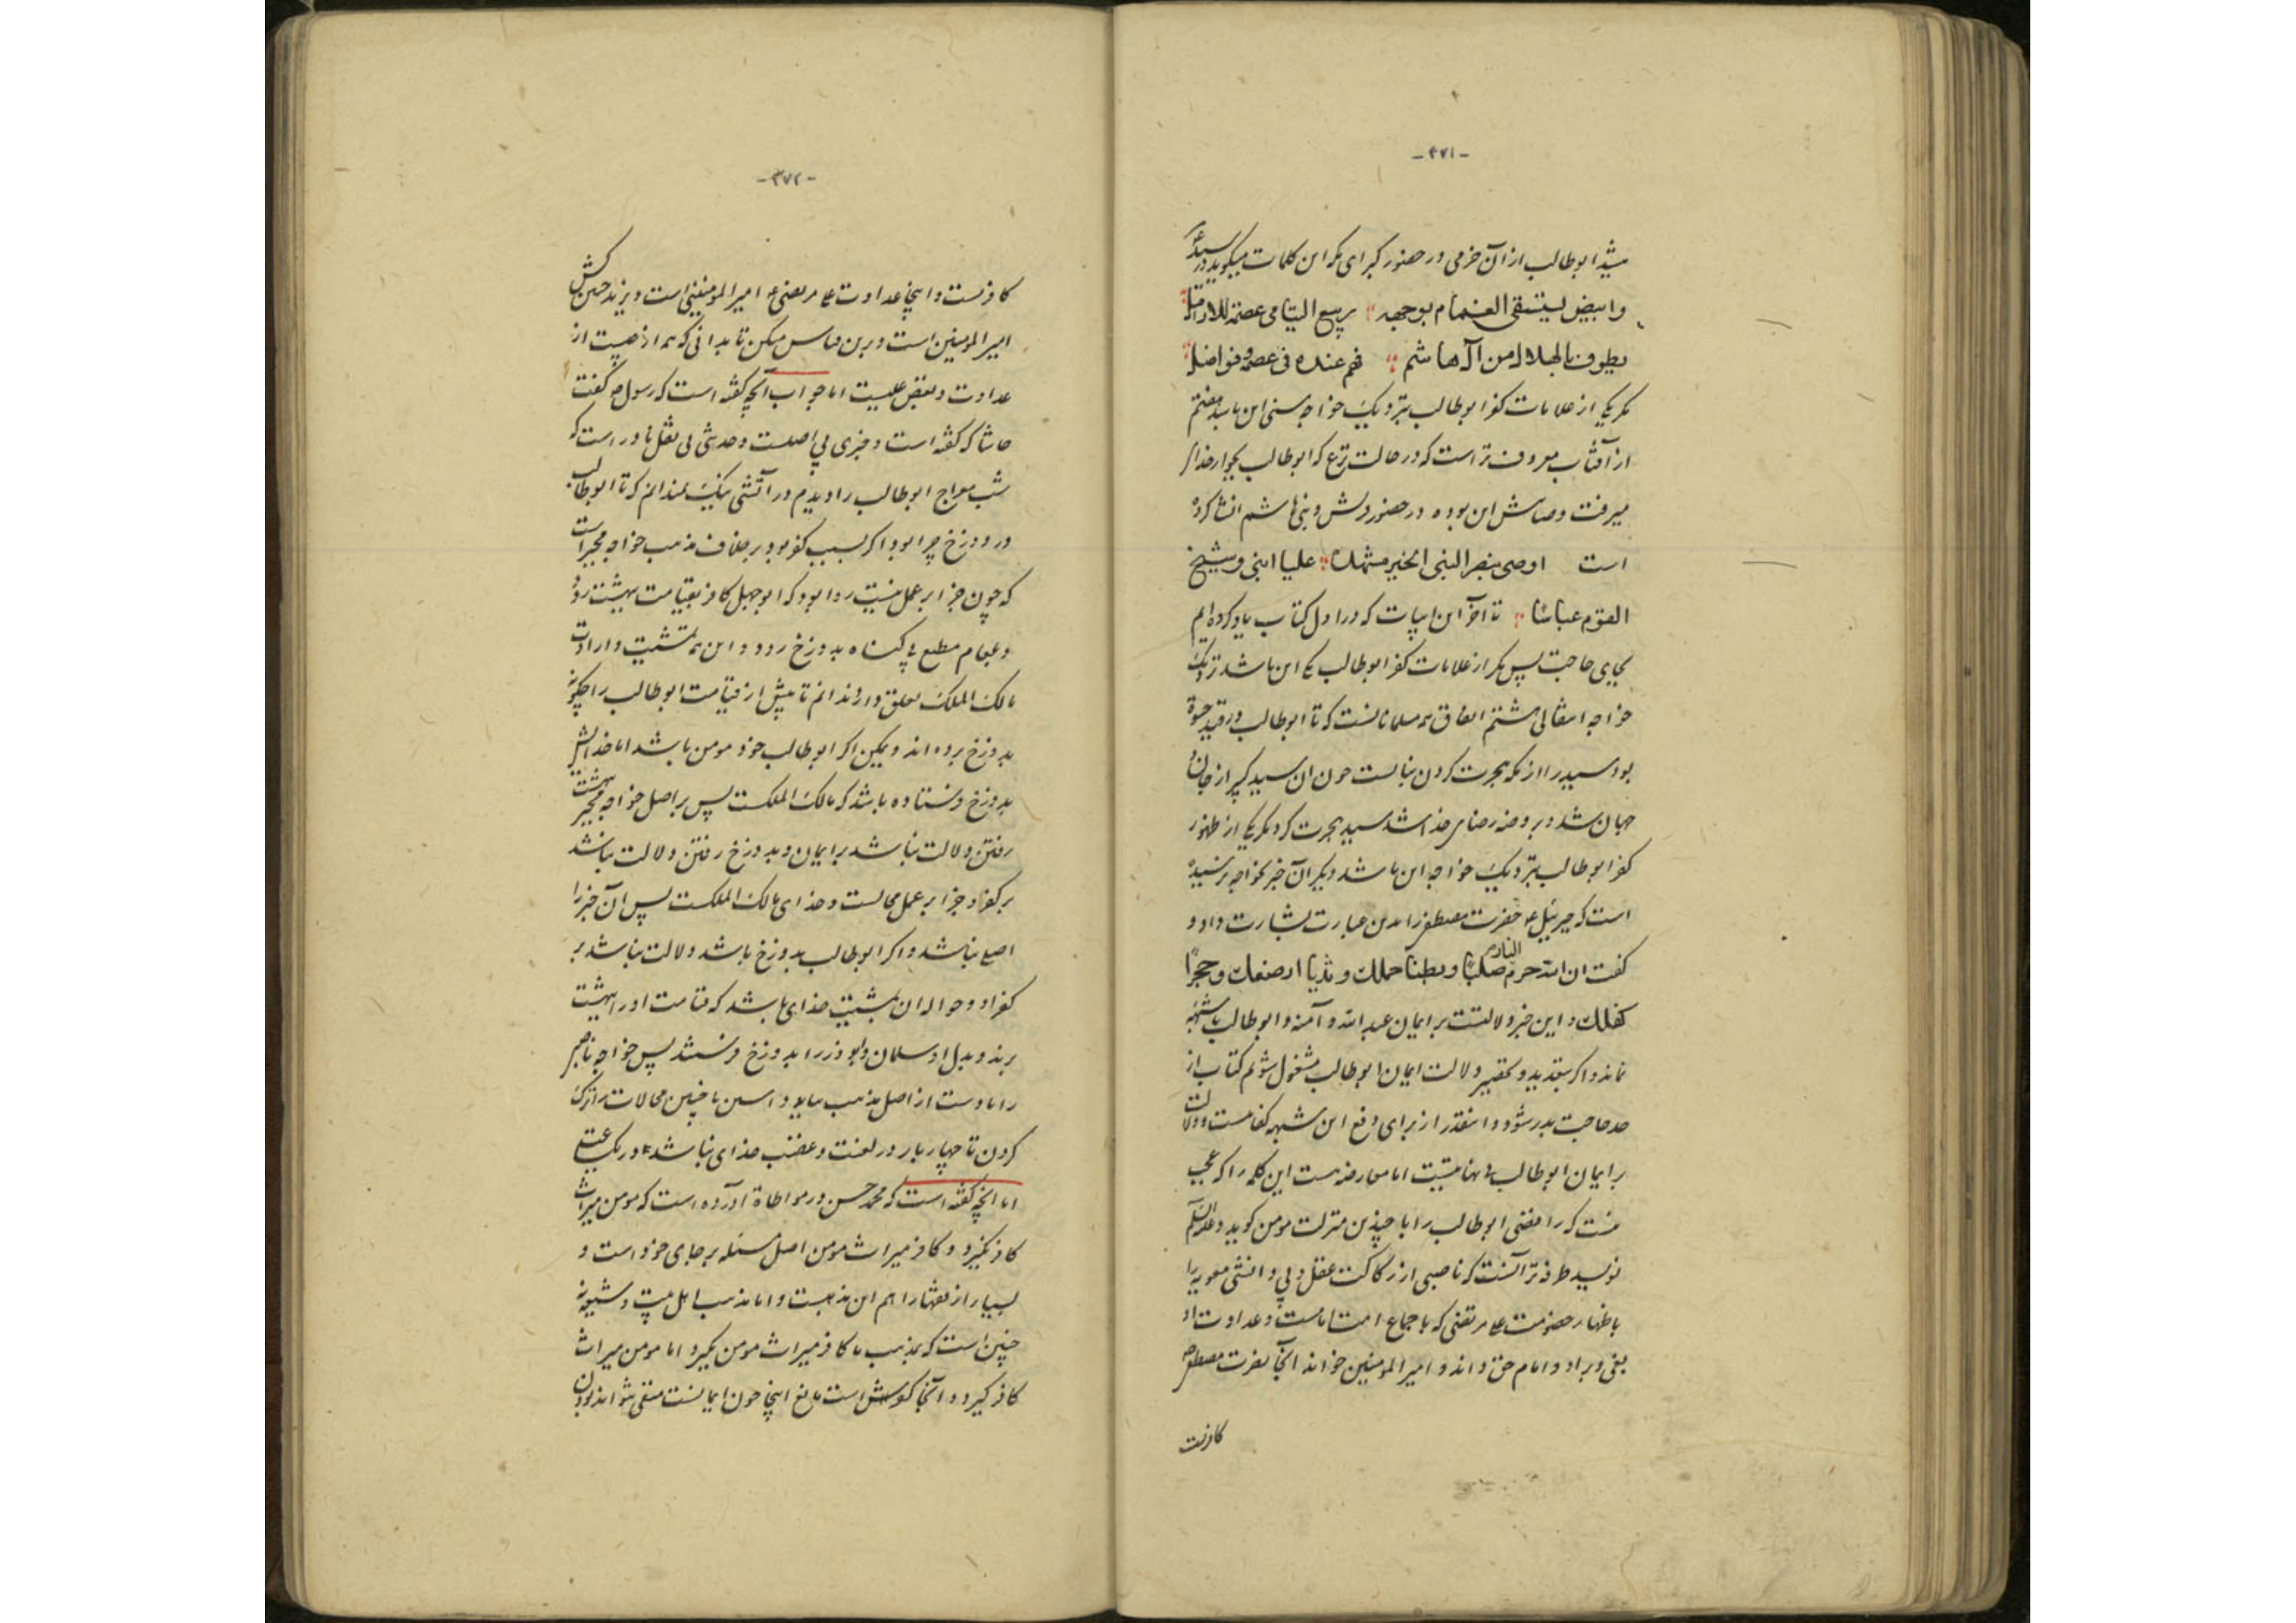 -۴۷۱-
شد ابوطالب از آن خرمی در حضور کبرای مکه این کلمات میگوید در سید ع
وابیض لیستسقی الغمام بوجهه ؛ ربیع الیتامی عصمة للارامل
یطوف به الهلاک من آل هاشم ؛ فهم عنده فی عصمة و فواضل
مگر یکی از علامات کفر ابوطالب بنزدیک خواجه سنی این باشد هفتم
از آفتاب معروف تر است که در حالت نزع که ابوطالب بجوار خدای
میرفت وصایتش این بوده در حضور قریش و بنی هاشم انشا کرده
است اوصی بنصر النبی الخیر مشهده ؛ علیا ابنی و شیخ
القوم عباسا ؛ تا آخر این ابیات که در اول کتاب یاد کرده ایم
بجای حاجت پس مگر از علامات کفر ابوطالب یکی این باشد نزدیک
خواجه انتقالی هشتم اتفاق همه مسلمانانست که تا ابوطالب در قید حیوة
بود سید را از مکه هجرت کردن نبایست چون آن سید کبیر از جان و
جهان شد و بروضه رضای خدا شد سید هجرت کرد مگر یکی از ظهور
کفر ابوطالب بنزدیک خواجه این باشد دیگر آن خبر بخواجه نرسیده
است که جبرئیل ع حضرت مصطفی را بدین عبارت بشارت داد و
گفت ان الله حرم النار صلبا و بطنا حملک و ثدیا ارضعک و حجرا
کفلک و این خبر دلالتست بر ایمان عبدالله و آمنه و ابوطالب تا شبهه
نماند و اگر بتعدید و تحقیر دلالت ایمان ابوطالب مشغول شویم کتاب از
حد حاجت بدر شود و اینقدر از برای دفع این شبهه کفایست و دلالت
بر ایمان ابوطالب را نهایتیست اما معارضه هست این کلمه را که عجب
نیست که رافضی ابوطالب را با چندین منزلت مومن گوید و علیه السلم
نویسد طرفه تر آنست که ناصبی از رکاکت عقل و بی دانشی معویه را
باظهار خصومت علی مرتضی که باجماع امت امامست و عداوت او
بغی ورزد او و امام حق داند و امیر المومنین خواند آنجا نصرت مصطفی ص
کافرست
-۴۷۲-
کافرست و اینجا عداوت علی مرتضی ع امیر المومنینی است و یزید حسین کش
امیر المومنین است و برین قیاس میکن تا بدانی که همه از چیست از
عداوت و بغض علیست اما جواب آنچه گفته است که رسول ص گفت
حاشا که گفته است و خبری بی اصلست و حدیثی بی نقل نا در است که
شب معراج ابوطالب را دیدم در آتشی نیک نمیدانم که تا ابوطالب
در دوزخ چرا بود اگر بسبب کفر بود بر خلاف مذهب خواجه مجبر است
که چون جزا بر عمل نیست روا بود که ابوجهل کافر بقیامت بهشت رود
و عمام مطیع بی گناه بدوزخ رود و این همه بمشیت و ارادت
مالک الملک تعلق دارد ندانم تا پیش از قیامت ابوطالب را چگونه
بدوزخ برده اند و ممکن اگر ابوطالب خود مومن باشد اما خدایش
بدوزخ فرستاده باشد که مالک الملکست پس بر اصل خواجه مجبر بهشت
رفتن دلالت نباشد بر ایمان و بدوزخ رفتن دلالت نباشد
بر کفر و جزا بر عمل محالست و خدای مالک الملکست پس آن خبر را
اصلی نباشد و اگر ابوطالب بدوزخ باشد دلالت نباشد بر
کفر او و حواله آن بمشیت خدای باشد که قیامت او را ببهشت
برند و بدل او سلمان و ابوذر را بدوزخ فرستد پس خواجه ناصبی
را یا دست از اصل مذهب بباید داشتن یا چنین محالات را ترک
کردن تا چهار بار در لعنت و غضب خدای نباشد
اما آنچه گفته است که محمد حسن در موطاة آورده است که مومن میراث
کافر نگیرد و کافر میراث مومن اصل مسئله بر جای خود است و
بسیار از فقها را هم این مذهبست و اما مذهب اهل بیت و شیعه
چنین است که بمذهب ما کافر میراث مومن نگیرد اما مومن میراث
کافر گیرد و آنجا کفرش است مانع اینجا چون ایمانست منعی نتواند بودن